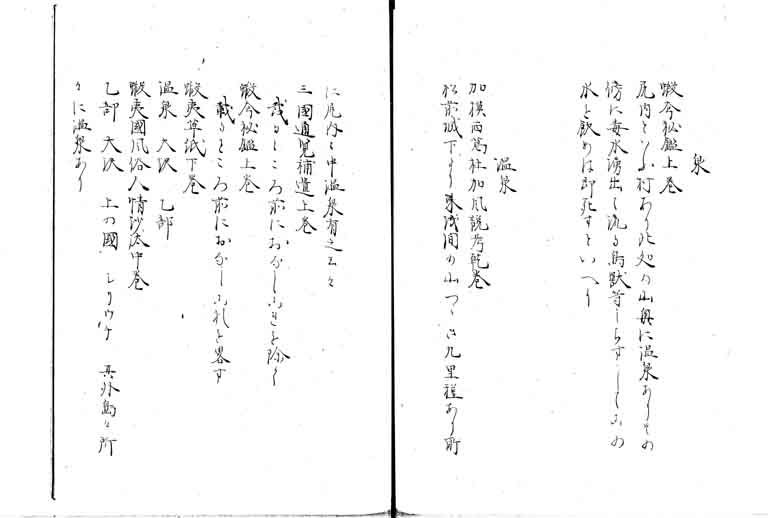 泉
蝦夷今秘鑑上巻
尻内といふ村あり此処の山奥に温泉ありその
傍に毒水湧出て流る鳥獣等しらすしてこの
水を飲めは即死すといへり
温泉
加模西葛杜加風説考乾巻
松前城下より東浅間の山つゝき九里程あり所
に尻内と申温泉有之云々
三國通覧補遺上巻
載るところ前におなしふきを除く
蝦夷今秘鑑上巻
載るところ前におなし故に畧す
蝦夷草紙下巻
温泉 大沢 乙部
蝦夷國風俗人情沙汰中巻
乙部 大沢 上の國 しりうち 其外島々所
々に温泉あり